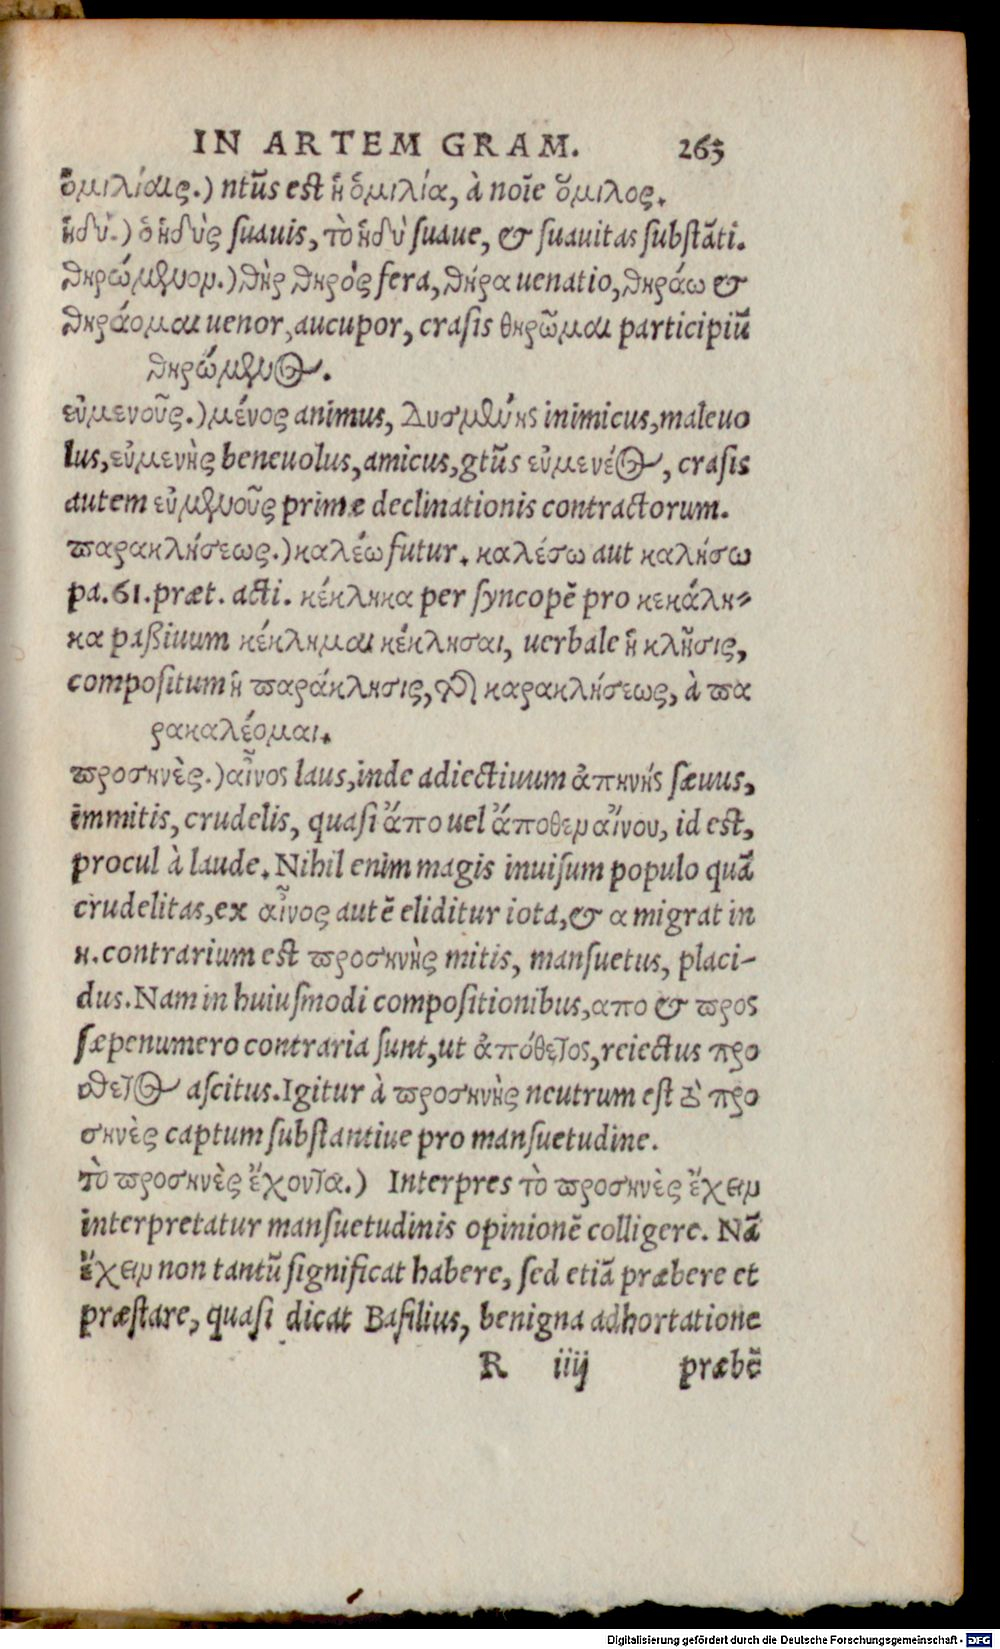 IN ARTEM GRAM. 263
ὁμιλίαις.) ntũs est ἡ ὁμιλία, à noĩe ὅμιλος.
ἡδύ.) ὁ ἡδὺς suauis, τὸ ἡδὺ suaue, & suauitas substãti.
θηρώμενον.) θὴρ θηρὸς fera, θήρα uenatio, θηράω &
θηράομαι uenor, aucupor, crasis θηρῶμαι participiũ
θηρώμενος.
εὐμενοῦς.) μένος animus, Δυσμενής inimicus, maleuo
lus, εὐμενὴς beneuolus, amicus, gtũs εὐμενέος, crasis
autem εὐμενοῦς primæ declinationis contractorum.
παρακλήσεως.) καλέω futur. καλέσω aut καλήσω
pa. 61. præt. acti. κέκληκα per syncopẽ pro κεκάλη=
κα paßiuum κέκλημαι κέκλησαι, uerbale ἡ κλῆσις,
compositum ἡ παράκλησις, τῆς καρακλήσεως, à πα
ρακαλέομαι.
προσηνὲς.) αἶνος laus, inde adiectiuum ἀπηνής sæuus,
immitis, crudelis, quasi ἄπο uel ἄποθεν αἴνου, id est,
procul à laude. Nihil enim magis inuisum populo quã
crudelitas, ex αἶνος autẽ eliditur iota, & α migrat in
η. contrarium est προσηνὴς mitis, mansuetus, placi-
dus. Nam in huiusmodi compositionibus, απο & προς
sæpenumero contraria sunt, ut ἀπόθετος, reiectus προ
σθετος ascitus. Igitur à προσηνὴς neutrum est τὸ προ
σηνὲς captum substantiue pro mansuetudine.
τὸ προσηνὲς ἔχοντα.) Interpres τὸ προσηνὲς ἔχειν
interpretatur mansuetudinis opinionẽ colligere. Nã
ἔχειν non tantũ significat habere, sed etiã præbere et
præstare, quasi dicat Basilius, benigna adhortatione
R iiij præbẽ
Digitalisierung gefördert durch die Deutsche Forschungsgemeinschaft - DFG